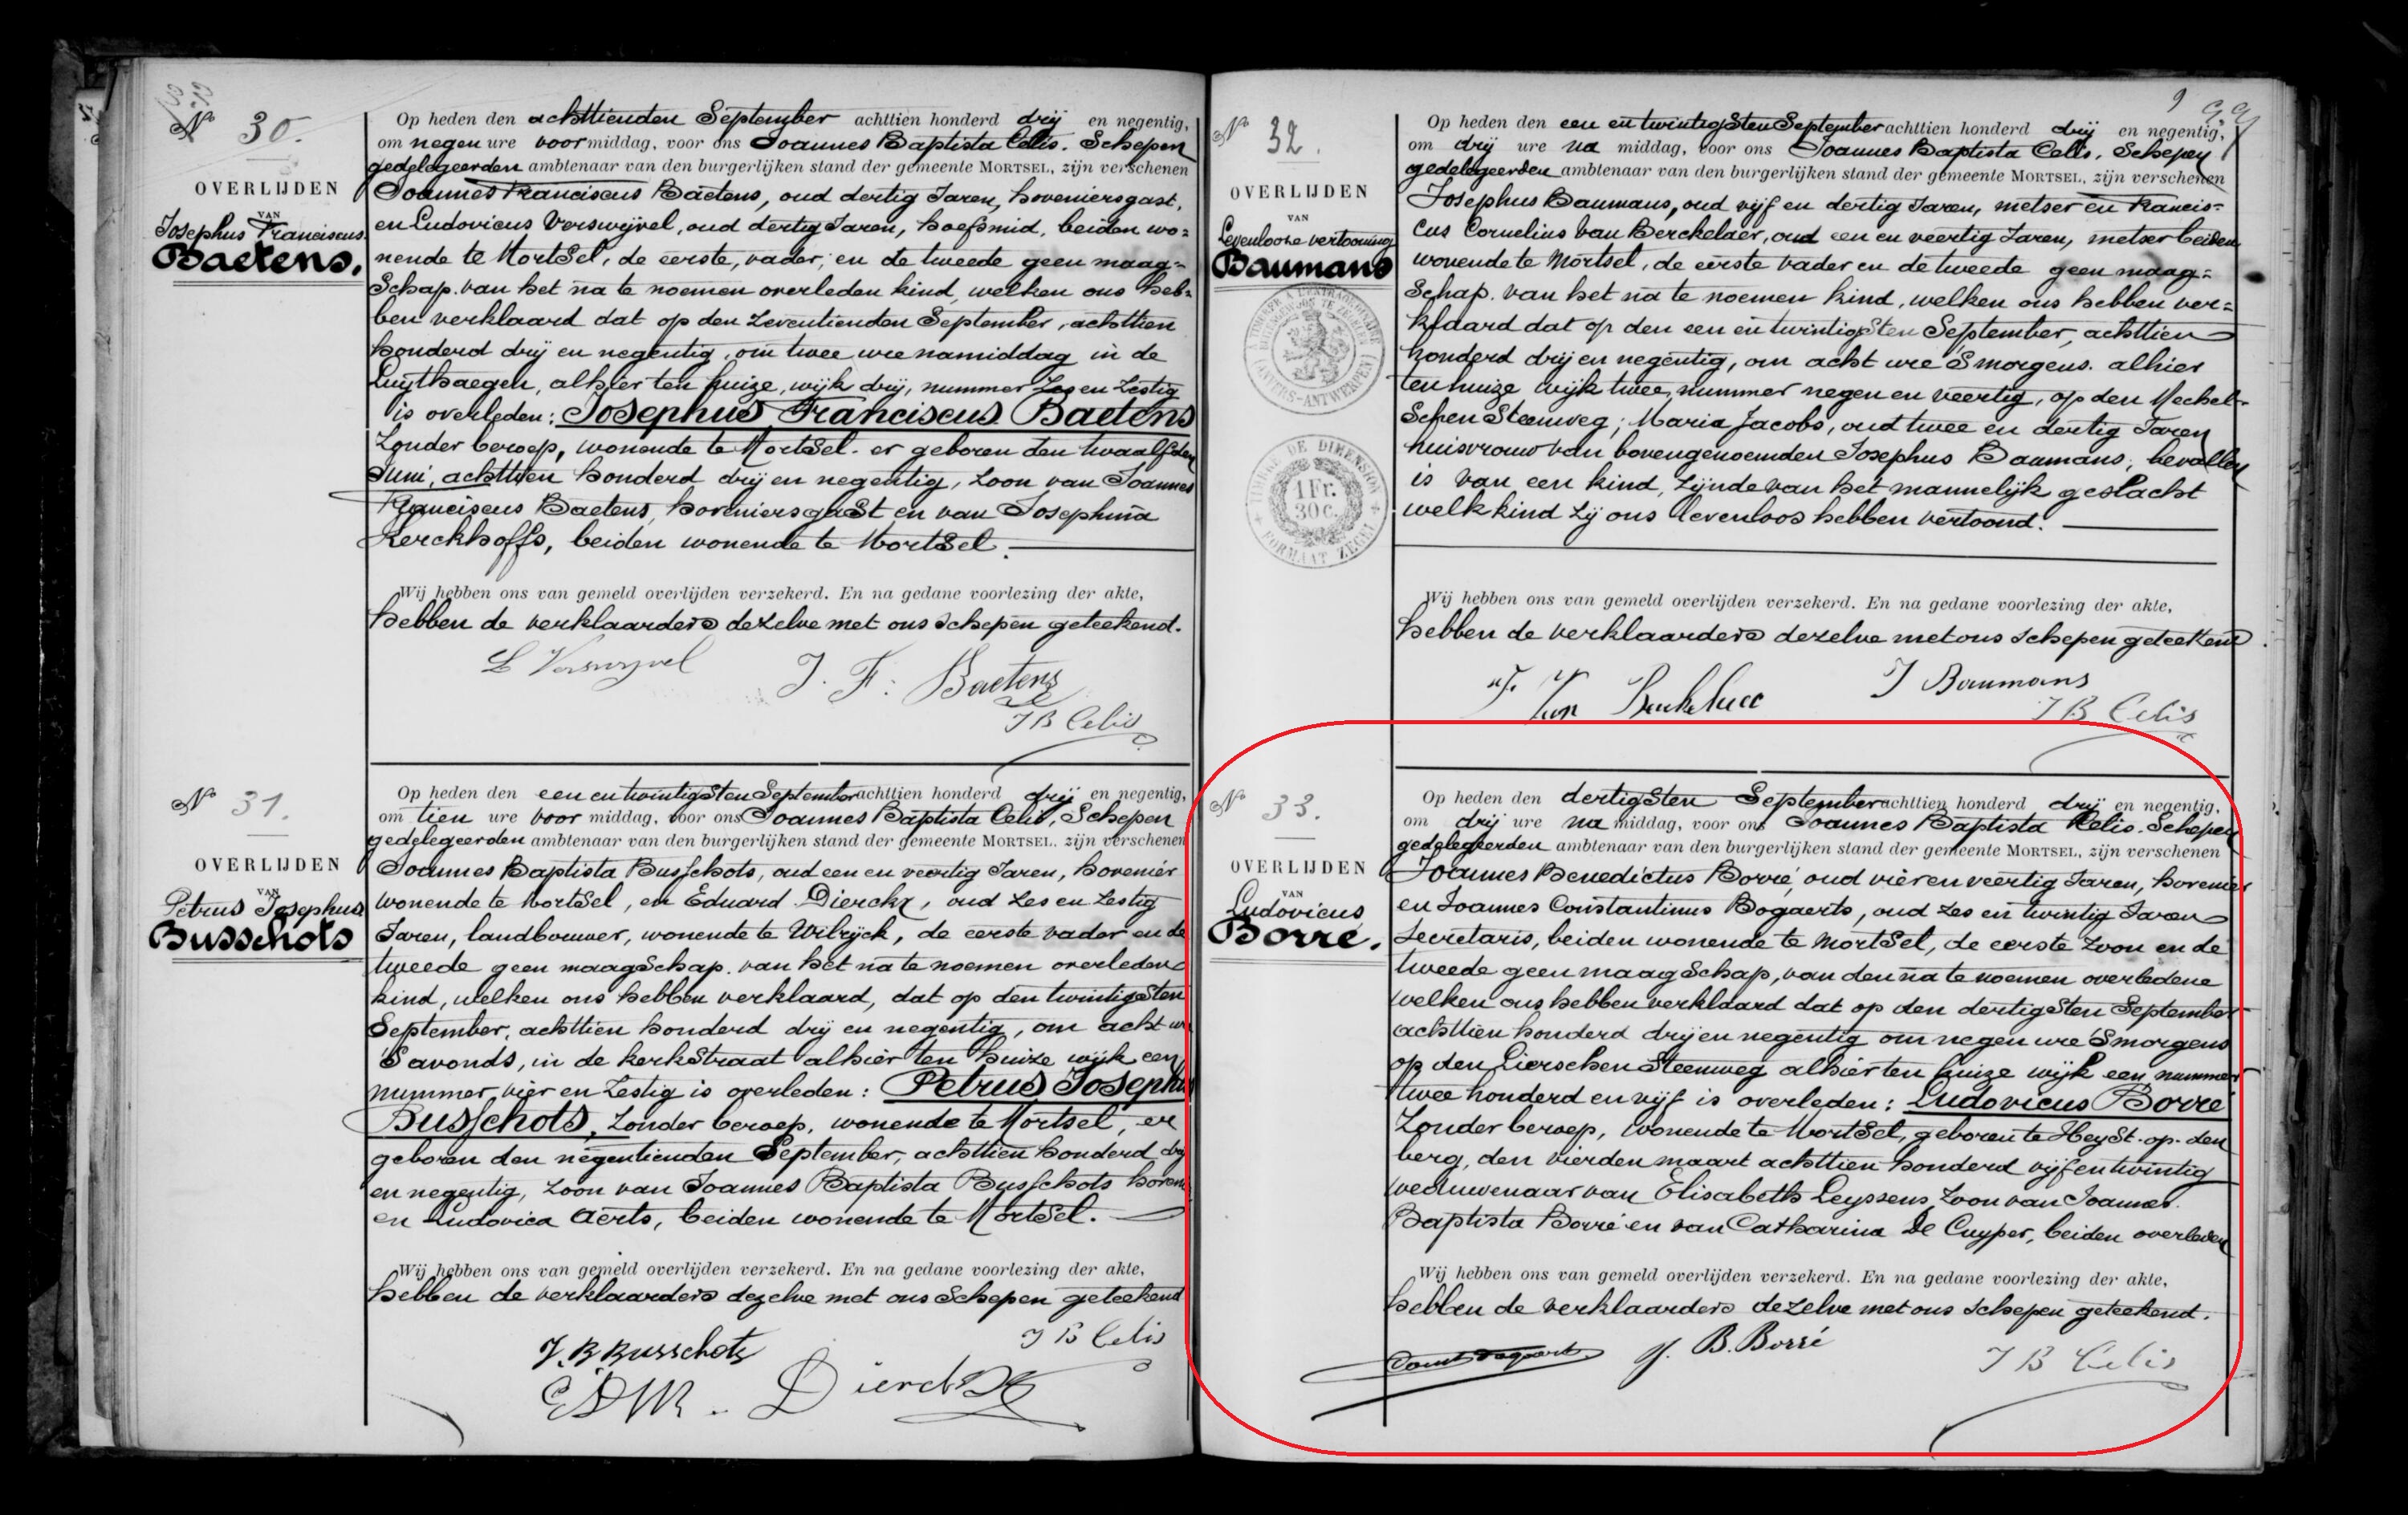 Nr 30.
OVERLIJDEN
VAN
Josephus Franciscus
Baetens.
Op heden den achttienden September achttien honderd drij en negentig,
om negen ure voormiddag, voor ons Joannes Baptista Celis. Schepen
gedelegeerden ambtenaar van den burgerlijken stand der gemeente MORTSEL, zijn verschenen
Joannes Franciscus Baetens, oud dertig Jaren, hoveniersgast,
en Ludovicus Verswijvel, oud dertig Jaren, hoefsmid, beiden wo=
nende te Mortsel, de eerste, vader, en de tweede geen maag=
schap. van het na te noemen overleden kind, welken ons heb=
ben verklaard dat op den zeventienden September, achttien
honderd drij en negentig, om twee ure namiddag in de
Luythaegen, alhier ten huize, wijk drij, nummer zes en zestig
is overleden: Josephus Franciscus Baetens
zonder beroep, wonende te Mortsel. er geboren den twaalfden
Juni, achttien honderd drij en negentig, zoon van Joannes
Franciscus Baetens, hoveniersgast en van Josephina
Kerckhoffs, beiden wonende te Mortsel.
Wij hebben ons van gemeld overlijden verzekerd. En na gedane voorlezing der akte,
hebben de verklaarders dezelve met ons schepen geteekend.
L Verswyvel J. F. Baetens
J B Celis
Nr 31.
OVERLIJDEN
VAN
Petrus Josephus
Busschots
Op heden den een en twintigsten September achttien honderd drij en negentig,
om tien ure voor middag, voor ons Joannes Baptista Celis, Schepen
gedelegeerden ambtenaar van den burgerlijken stand der gemeente MORTSEL. zijn verschenen
Joannes Baptista Busschots, oud een en veertig Jaren, hovenier
wonende te Mortsel, en Eduard Dierckx, oud zes en zestig
Jaren, landbouwer, wonende te Wilrijck, de eerste vader en de
tweede geen maagschap. van het na te noemen overleden
kind, welken ons hebben verklaard, dat op den twintigsten
September, achttien honderd drij en negentig, om acht ure
'Savonds, in de kerkstraat alhier ten huize wijk een
nummer vier en zestig is overleden: Petrus Josephus
Busschots, zonder beroep, wonende te Mortsel, er
geboren den negentienden September, achttien honderd drij
en negentig, zoon van Joannes Baptista Busschots hovenier
en Ludovica Aerts, beiden wonende te Mortsel.
Wij hebben ons van gemeld overlijden verzekerd. En na gedane voorlezing der akte,
hebben de verklaarders dezelve met ons Schepen geteekend
J. B. Busschots J B Celis
Dierckx
9
Nr 32.
OVERLIJDEN
VAN
Levenlooze vertooning
Baumans
TIMBRE DE DIMENSION
1 Fr.
30 c.
FORMAAT ZEGEL
Op heden den een en twintigsten September achttien honderd drij en negentig,
om drij ure na middag, voor ons Joannes Baptista Celis, Schepen
gedelegeerden ambtenaar van den burgerlijken stand der gemeente MORTSEL, zijn verschenen
Josephus Baumans, oud vijf en dertig Jaren, metser en Francis=
cus Cornelius Van Berckelaer, oud een en veertig Jaren, metser beiden
wonende te Mortsel, de eerste vader en de tweede geen maag=
schap. van het na te noemen kind, welken ons hebben ver=
klaard dat op den een en twintigsten September, achttien
honderd drij en negentig, om acht ure 'Smorgens. alhier
ten huize wijk twee, nummer negen en veertig, op den Mechel=
schen Steenweg; Maria Jacobs, oud twee en dertig Jaren
huisvrouw van bovengenoemden Josephus Baumans, bevallen
is van een kind, zijnde van het mannelijk geslacht
welk kind zij ons levenloos hebben vertoond.
Wij hebben ons van gemeld overlijden verzekerd. En na gedane voorlezing der akte,
hebben de verklaarders dezelve met ons schepen geteekend
J Baumans
J B Celis
Nr 33.
OVERLIJDEN
VAN
Ludovicus
Borré.
Op heden den dertigsten September achttien honderd drij en negentig,
om drij ure na middag, voor ons Joannes Baptista Celis. Schepen
gedelegeerden ambtenaar van den burgerlijken stand der gemeente MORTSEL, zijn verschenen
Joannes Benedictus Borré, oud vier en veertig Jaren, hovenier
en Joannes Constantinus Bogaerts, oud zes en twintig Jaren
secretaris, beiden wonende te Mortsel, de eerste zoon en de
tweede geen maagschap, van den na te noemen overledene
welken ons hebben verklaard dat op den dertigsten September
achttien honderd drij en negentig om negen ure 'Smorgens
op den Lierschen Steenweg alhier ten huize wijk een, nummer
twee honderd en vijf is overleden: Ludovicus Borré
zonder beroep, wonende te Mortsel, geboren te Heyst-op-den
berg, den vierden maart achttien honderd vijf en twintig
weduwenaar van Elisabeth Leyssens, zoon van Joannes
Baptista Borré en van Catharina De Cuyper, beiden overleden
Wij hebben ons van gemeld overlijden verzekerd. En na gedane voorlezing der akte,
hebben de verklaarders dezelve met ons schepen geteekend.
J. B. Borré J B Celis